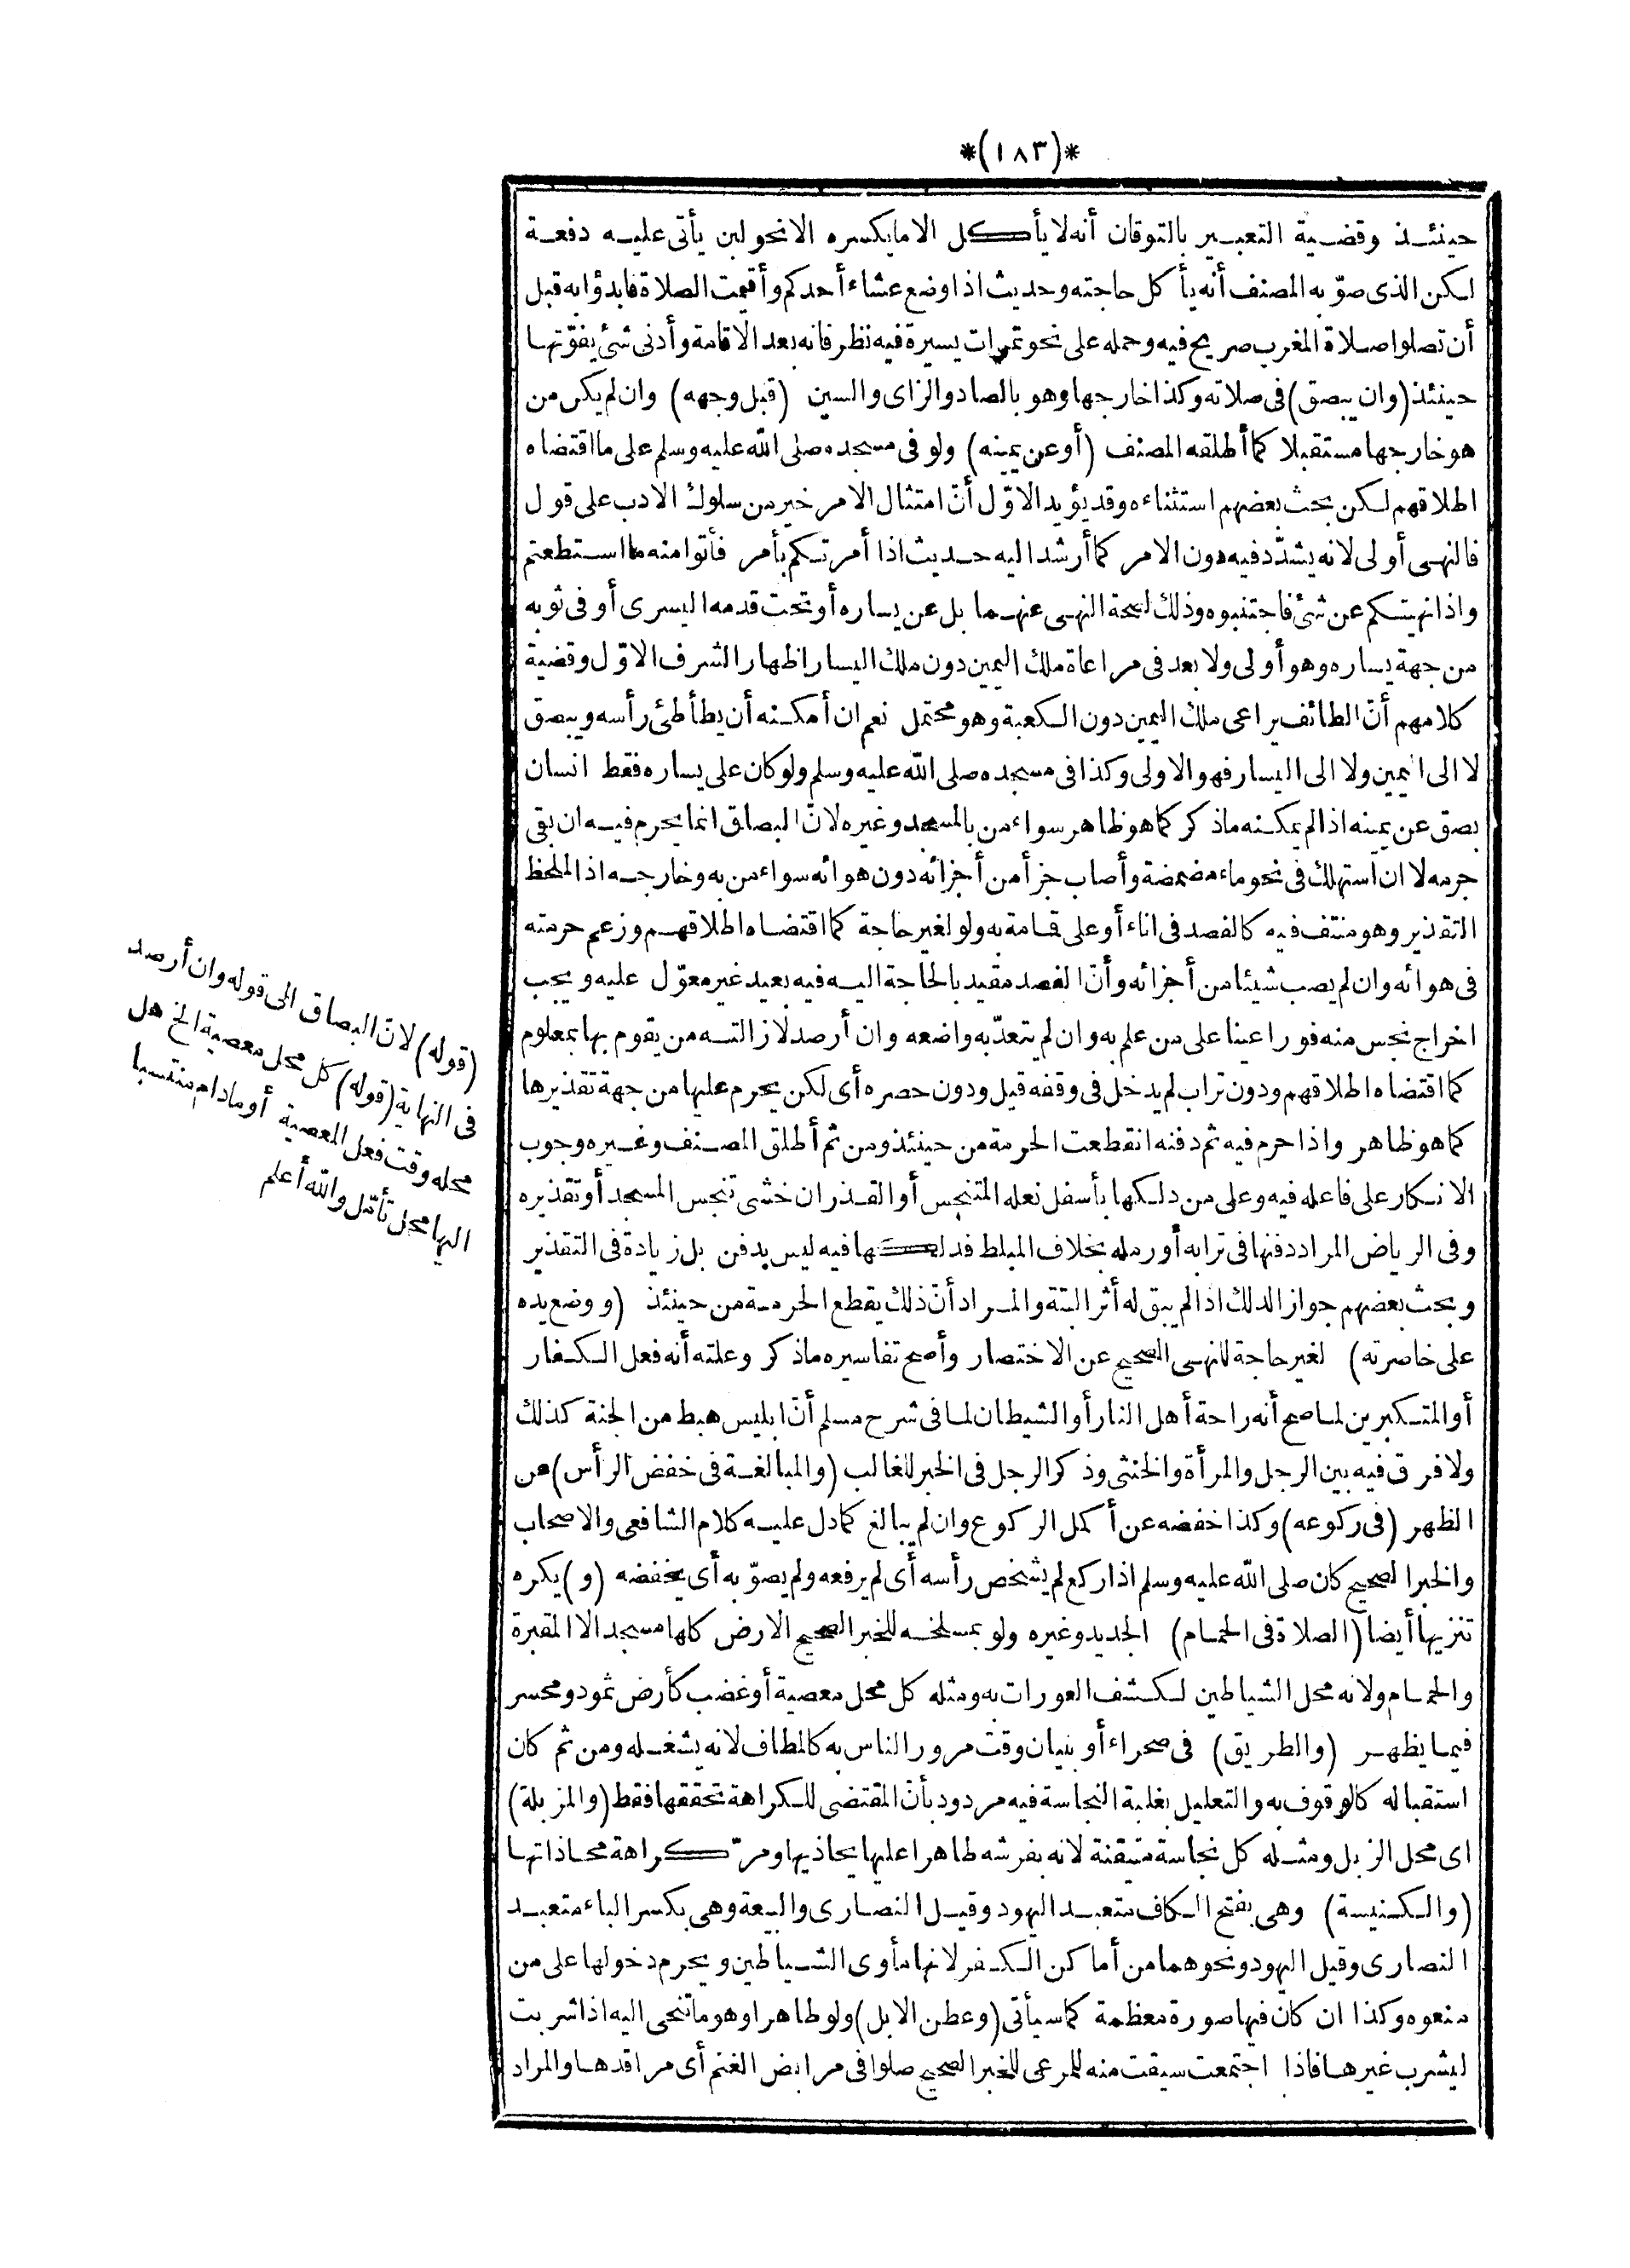 *(١٨٣)*
حينئذ وقضية التعبير بالتوقان أنه لا يأكل الا ما يكسره الا نحو لبن يأتى عليه دفعة
لكن الذى صوّبه المصنف أنه يأكل حاجته وحديث اذا وضع عشاء أحدكم وأقيمت الصلاة فابدؤا به قبل
أن تصلوا صلاة المغرب صريح فيه وحمله على نحو تمرات يسيرة فيه نظر فانه بعد الاقامة وأدنى شئ يفوّتها
حينئذ (وان يبصق) فى صلاته وكذا خارجها وهو بالصاد والزاى والسين (قبل وجهه) وان لم يكن من
هو خارجها مستقبلا كما أطلقه المصنف (أو عن يمينه) ولو فى مسجده صلى الله عليه وسلم على ما اقتضاه
اطلاقهم لكن بحث بعضهم استثناءه وقد يؤيد الاوّل أنّ امتثال الامر خير من سلوك الادب على قول
فالنهى أولى لانه يشدّد فيه دون الامر كما أرشد اليه حديث اذا أمرتكم بأمر فأتوا منه ما استطعتم
واذا نهيتكم عن شئ فاجتنبوه وذلك لصحة النهى عنهما بل عن يساره أو تحت قدمه اليسرى أو فى ثوبه
من جهة يساره وهو أولى ولا بعد فى مراعاة ملك اليمين دون ملك اليسار اظهار الشرف الاوّل وقضية
كلامهم أنّ الطائف يراعى ملك اليمين دون الكعبة وهو محتمل نعم ان أمكنه أن يطأطئ رأسه ويبصق
لا الى اليمين ولا الى اليسار فهو الاولى وكذا فى مسجده صلى الله عليه وسلم ولو كان على يساره فقط انسان
بصق عن يمينه اذا لم يمكنه ما ذكر كما هو ظاهر سواء من بالمسجد وغيره لانّ البصاق انما يحرم فيه ان بقى
جرمه لا ان استهلك فى نحو ماء مضمضة وأصاب جزأ من أجزائه دون هوائه سواء من به وخارجه اذ الملحظ
التقذير وهو منتف فيه كالفصد فى اناء أو على قمامة به ولو لغير حاجة كما اقتضاه اطلاقهم وزعم حرمته
فى هوائه وان لم يصب شيئا من أجزائه وأنّ الفصد مقيد بالحاجة اليه فيه بعيد غير معوّل عليه ويجب
اخراج نجس منه فورا عينا على من علم به وان لم يتعدّ به واضعه وان أرصد لازالته من يقوم بها بمعلوم
كما اقتضاه اطلاقهم ودون تراب لم يدخل فى وقفه قيل ودون حصره أى لكن يحرم عليها من جهة تقذيرها
كما هو ظاهر واذا حرم فيه ثم دفنه انقطعت الحرمة من حينئذ ومن ثم أطلق المصنف وغيره وجوب
الانكار على فاعله فيه وعلى من دلكها بأسفل نعله المتنجس أو القذر ان خشى تنجس المسجد أو تقذيره
وفى الرياض المراد دفنها فى ترابه أو رمله بخلاف المبلط فدلكها فيه ليس بدفن بل زيادة فى التقذير
وبحث بعضهم جواز الدلك اذا لم يبق له أثر البتة والمراد أنّ ذلك يقطع الحرمة من حينئذ (ووضع يده
على خاصرته) لغير حاجة للنهى الصحيح عن الاختصار وأصح تفاسيره ما ذكر وعلته أنه فعل الكفار
أو المتكبرين لما صح أنه راحة أهل النار أو الشيطان لما فى شرح مسلم أنّ ابليس هبط من الجنة كذلك
ولا فرق فيه بين الرجل والمرأة والخنثى وذكر الرجل فى الخبر للغالب (والمبالغة فى خفض الرأس) عن
الظهر (فى ركوعه) وكذا خفضه عن أكمل الركوع وان لم يبالغ كما دل عليه كلام الشافعى والاصحاب
والخبر الصحيح كان صلى الله عليه وسلم اذا ركع لم يشخص رأسه أى لم يرفعه ولم يصوّبه أى يخفضه (و) يكره
تنزيها أيضا (الصلاة فى الحمام) الجديد وغيره ولو بمسلخه للخبر الصحيح الارض كلها مسجد الا المقبرة
والحمام ولانه محل الشياطين لكشف العورات به ومثله كل محل معصية أو غضب كأرض ثمود ومحسر
فيما يظهر (والطريق) فى صحراء أو بنيان وقت مرور الناس به كالمطاف لانه يشغله ومن ثم كان
استقباله كالوقوف به والتعليل بغلبة النجاسة فيه مردود بأنّ المقتضى للكراهة تحققها فقط (والمزبلة)
اى محل الزبل ومثله كل نجاسة متيقنة لانه بفرشه طاهرا عليها يحاذيها ومرّ كراهة محاذاتها
(والكنيسة) وهى بفتح الكاف متعبد اليهود وقيل النصارى والبيعة وهى بكسر الباء متعبد
النصارى وقيل اليهود ونحوهما من أماكن الكفر لانها مأوى الشياطين ويحرم دخولها على من
منعوه وكذا ان كان فيها صورة معظمة كما سيأتى (وعطن الابل) ولو طاهرا وهو ما تنحى اليه اذا شربت
ليشرب غيرها فاذا اجتمعت سيقت منه للمرعى للخبر الصحيح صلوا فى مرابض الغنم أى مراقدها والمراد
(قوله) لانّ البصاق الى قوله وان أرصد
فى النهاية (قوله) كل محل معصية الخ هل
محله وقت فعل المعصية أو مادام منتسبا
اليها محل تأمّل والله أعلم